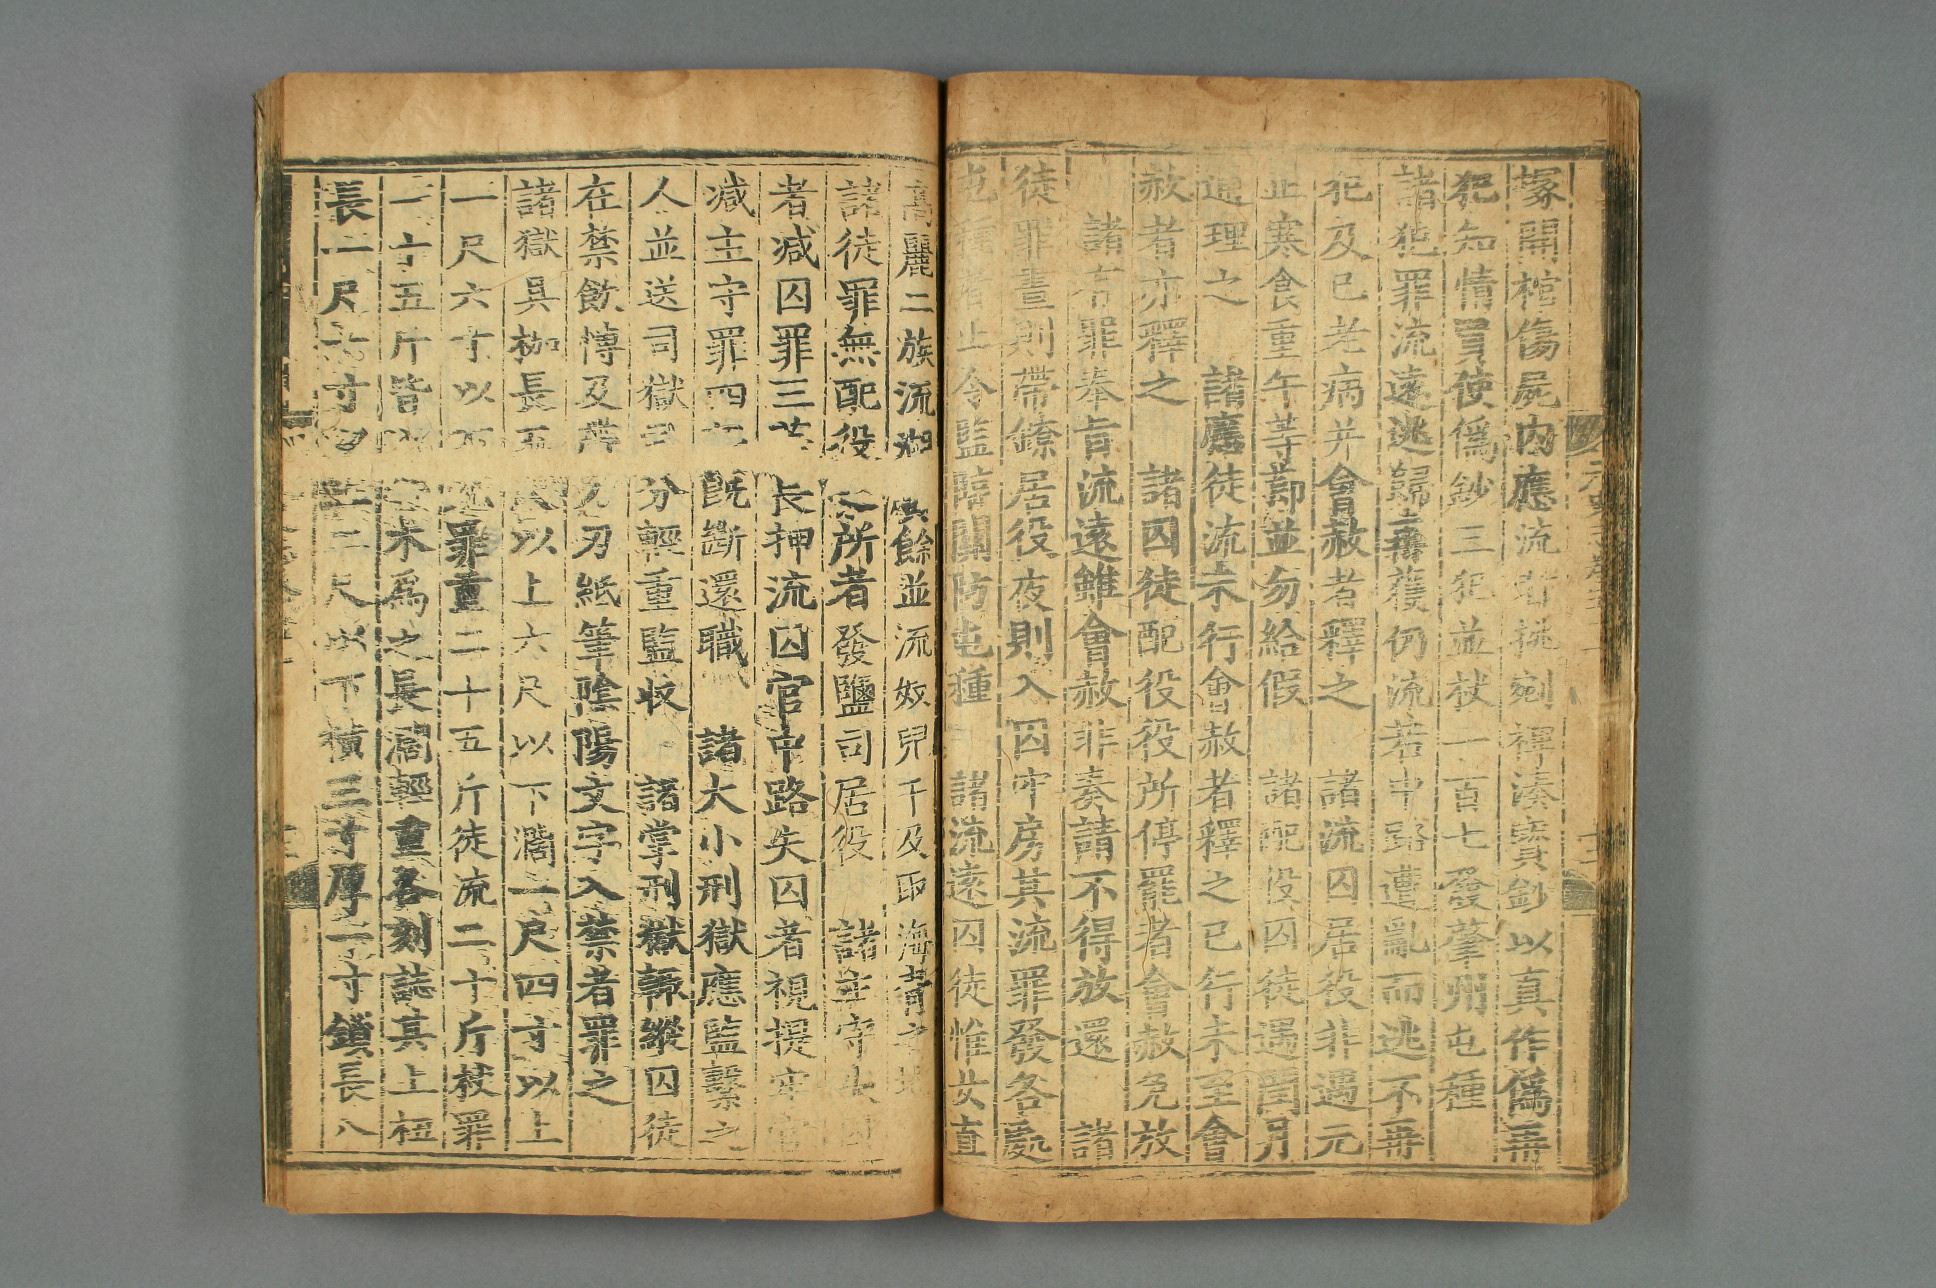 塚開棺傷屍內應流者挑剜裨湊寶鈔以真作僞再
犯知情買使僞鈔三犯並杖一百七發肇州屯種
諸犯罪流遠逃歸再獲仍流若中路遭亂而逃不再
犯及已老病并會赦者釋之　諸流囚居役非遇元
正寒食重午等節並勿給假　諸配役囚徒遇閏月
通理之　諸應徒流未行會赦者釋之已行未至會
赦者亦釋之　諸囚徒配役役所停罷者會赦免放
諸有罪奉旨流遠雖會赦非奏請不得放還　諸
徒罪晝則帶鐐居役夜則入囚牢房其流罪發各處
屯種者止令監臨關防屯種　諸流遠囚徒惟女直
高麗二族流湖餘並流奴兒干及取海青之地
諸徒罪無配役之所者發鹽司居役　諸主守失囚
者減囚罪三等長押流囚官中路失囚者視提牢官
減主守罪四等既斷還職　諸大小刑獄應監繫之
人並送司獄司分輕重監收　諸掌刑獄輒縱囚徒
在禁飲博及帶刀刃紙筆陰陽文字入禁者罪之
諸獄具枷長五尺以上六尺以下濶一尺四寸以上
一尺六寸以下死罪重二十五斤徒流二十斤杖罪
一十五斤皆以乾木爲之長濶輕重各刻誌其上杻
長一尺六寸以上二尺以下橫三寸厚一寸鎖長八